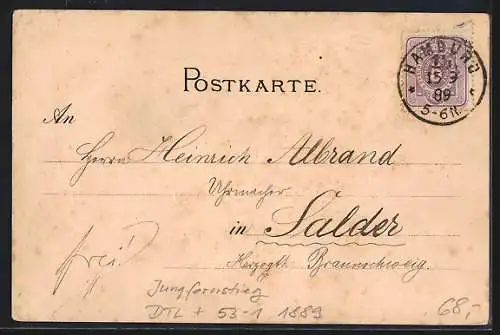 HAMBURG
15 3
89
5-6N.
POSTKARTE.
An
Herrn Heinrich Albrand
Uhrmacher
in Salder
Herzogth. Braunschweig.
frei!
Jungfernstieg
DTL * 53-1 1889
68,-